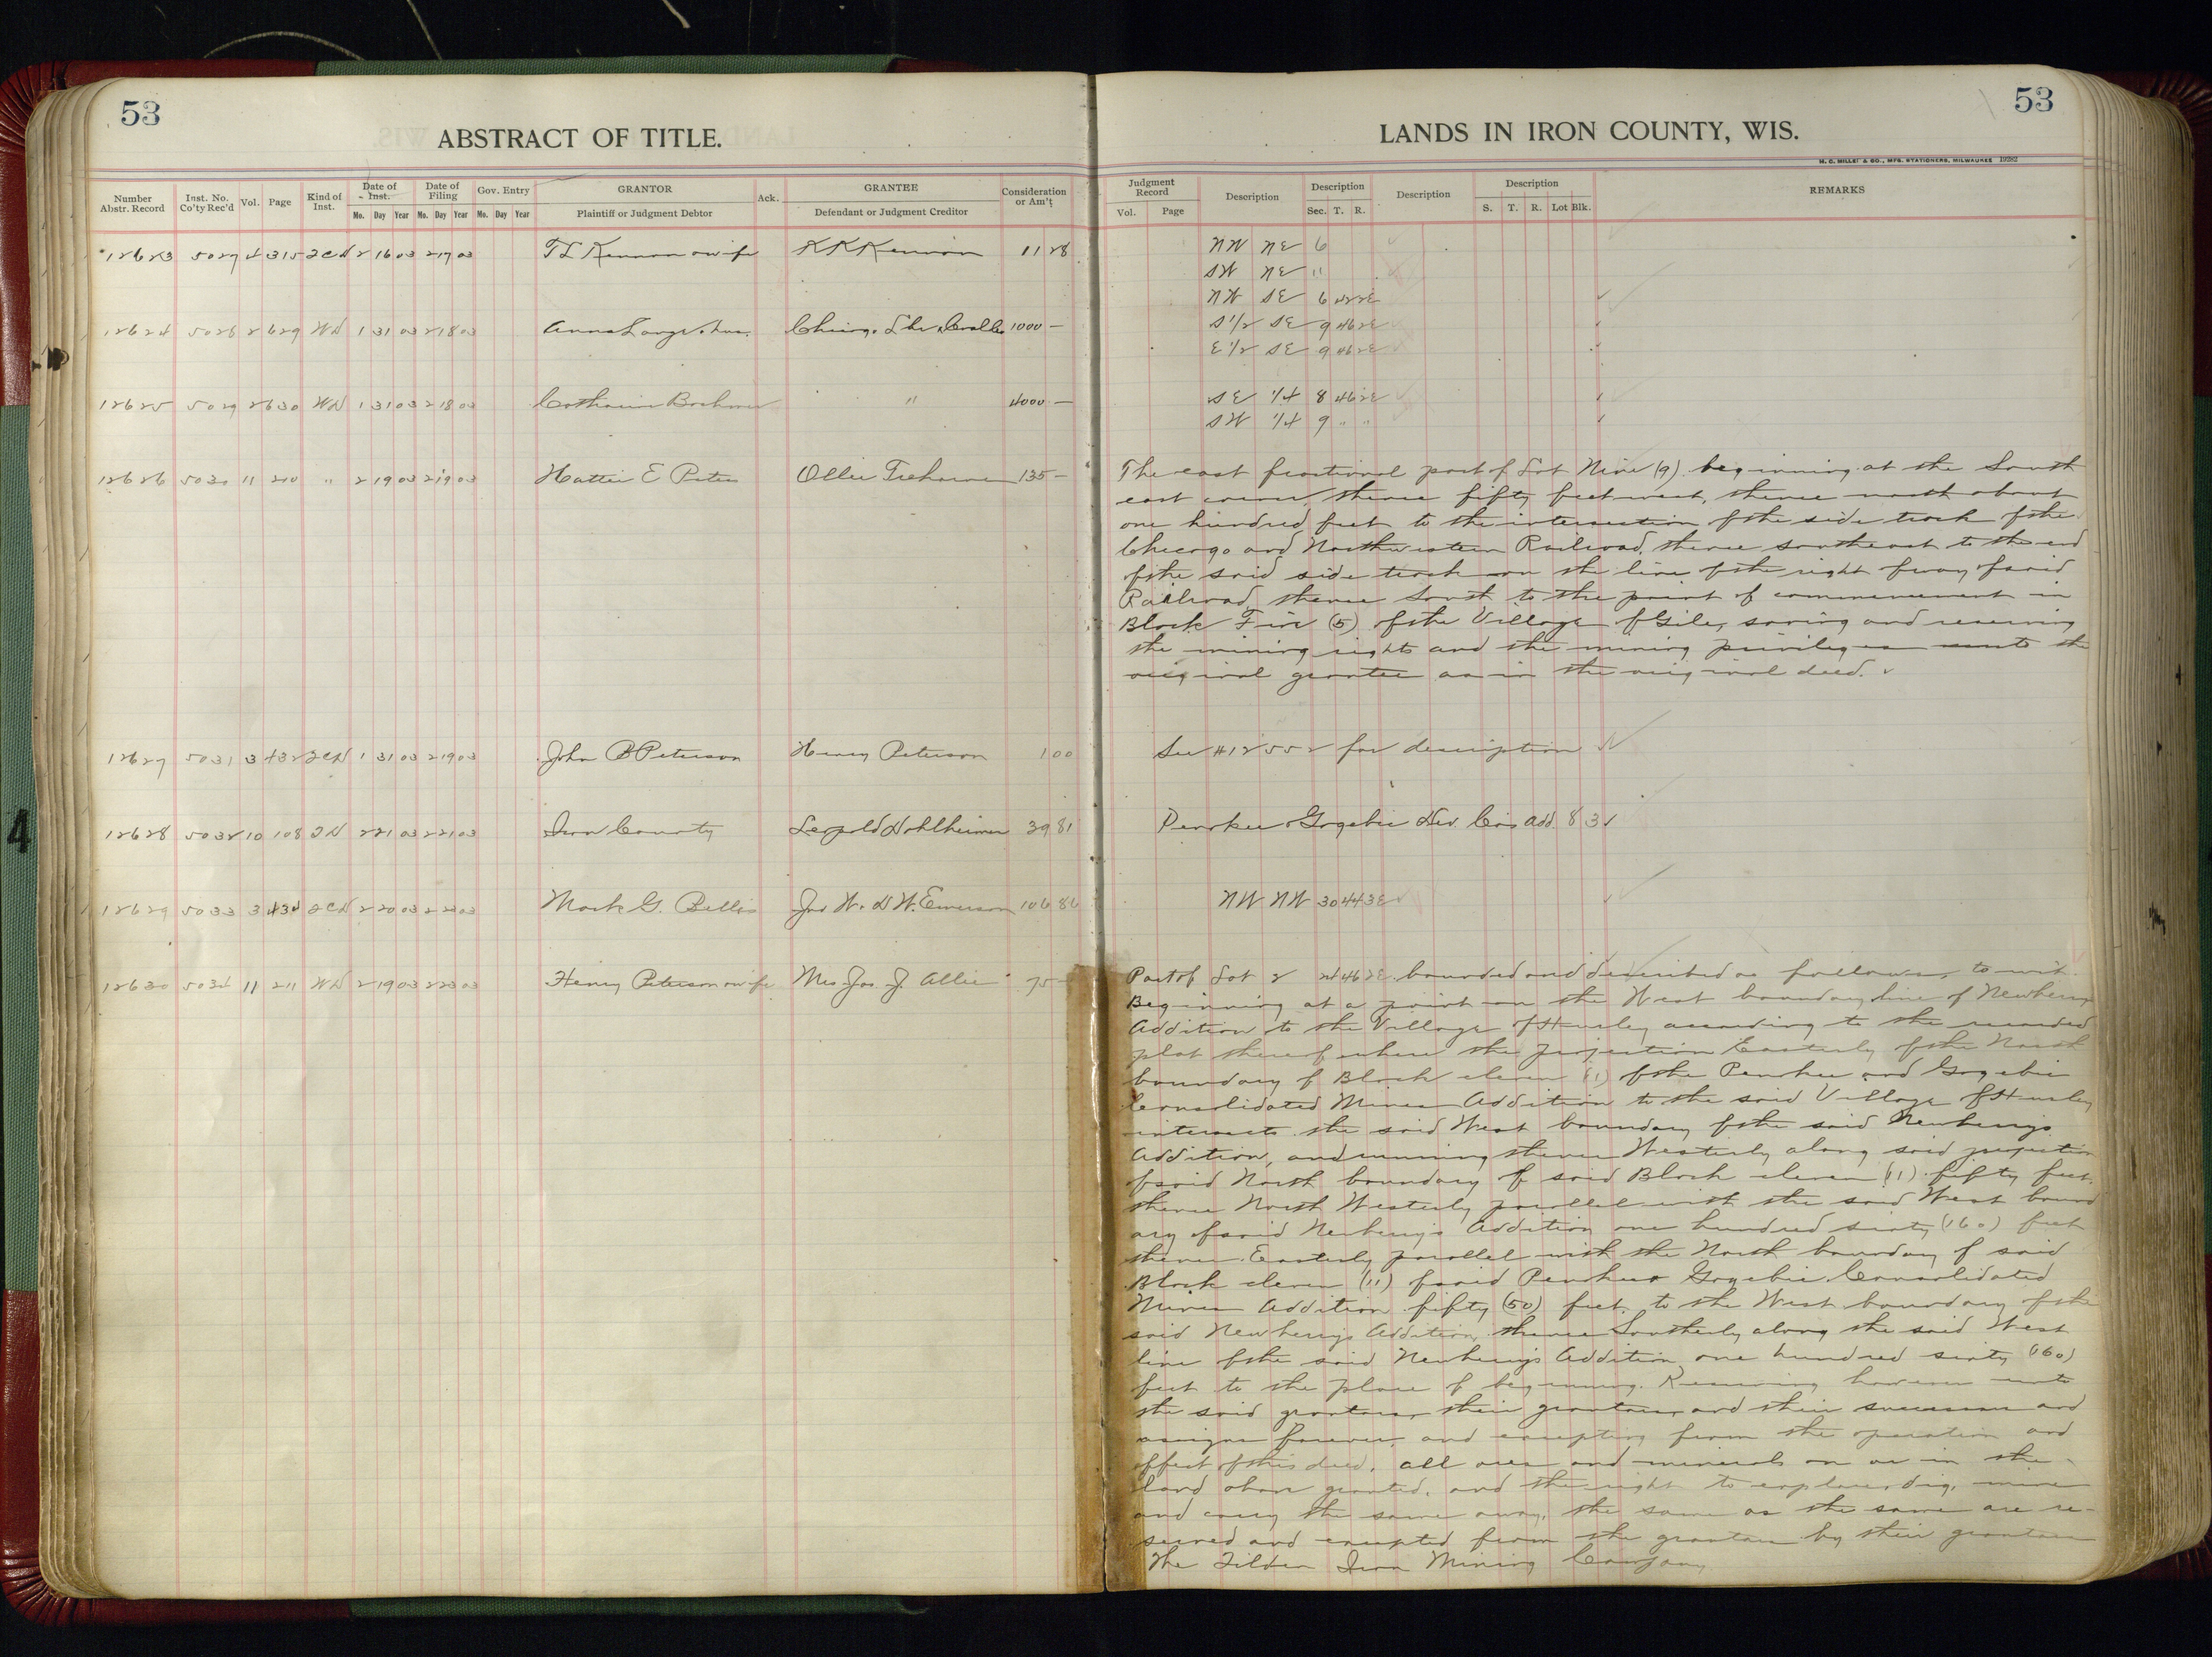 53
ABSTRACT OF TITLE.
Number Abstr. Record Inst. No. Co'ty Rec'd Vol. Page Kind of Inst. Date of Inst. Date of Filing Gov. Entry GRANTOR Ack. GRANTEE Consideration or Am't
Mo. Day Year Mo. Day Year Mo. Day Year Plaintiff or Judgment Debtor Defendant or Judgment Creditor
12623 5027 4 315 2CD 2 16 03 2 17 03 K K Kennan 11 28
12624 5028 2 629 WD 1 31 03 2 18 03 1000 —
12625 5029 2 630 WD 1 31 03 2 18 03 " 4000 —
12626 5030 11 210 " 2 19 03 2 19 03 Hattie E Peters Ollie 135 —
12627 5031 3 432 2CD 1 31 03 2 19 03 John B Peterson Henry Peterson 1 00
12628 5032 10 108 2 21 03 2 21 03 Iron County Leopold 39 81
12629 5033 3 434 2CD 2 20 03 2 03 Mark G. Jno W. & D W. Emerson 106 86
12630 5034 11 211 WD 2 19 03 2 23 03 Henry Peterson & wife Mrs Jos. J. Allie 75 —
53
LANDS IN IRON COUNTY, WIS.
MFG. STATIONERS, MILWAUKEE
Judgment Record Description Description Description Description REMARKS
Vol. Page Sec. T. R. S. T. R. Lot Blk.
NW NE 6
SW NE "
NW SE 6 42 2E
S 1/2 SE 9 46 2E
E 1/2 SE 9 46 2E
SE 1/4 8 46 2E
SW 1/4 9 " "
The east fractional part of Lot Nine (9) beginning at the South
east corner, thence fifty feet west, thence north about
one hundred feet to the intersection of the side track of the
Chicago and Northwestern Railroad, thence southeast to the end
of the said side track on the line of the right of way of said
Railroad, thence South to the point of commencement in
Block Five (5) of the Village of Gile, saving and reserving
the mining rights and the mining privileges unto the
original grantee as in the original deed.
See #12552 for description
Penokee & Gogebic Dev. Co's Add. 8 3
NW NW 30 44 3E
Part of Lot 2 24 46 2E bounded and described as follows, to wit.
Beginning at a point on the West boundary line of Newberrys
Addition to the Village of Hurley according to the recorded
plat thereof where the projection Easterly of the North
boundary of Block eleven (11) of the Penokee and Gogebic
Consolidated Mines Addition to the said Village of Hurley
intersects the said West boundary of the said Newberrys
Addition, and running thence Westerly along said projection
of said North boundary of said Block eleven (11) fifty feet,
thence North Westerly parallel with the said West bound
ary of said Newberrys Addition one hundred sixty (160) feet
thence Easterly parallel with the North boundary of said
Block eleven (11) of said Penokee & Gogebic Consolidated
Mines Addition fifty (50) feet to the West boundary of the
said Newberrys Addition, thence Southerly along the said West
line of the said Newberrys Addition one hundred sixty (160)
feet to the place of beginning. Reserving however unto
the said grantors, their grantors, and their successors and
assigns forever, and excepting from the operation and
effect of this deed, all ores and minerals on or in the
land above granted, and the right to explore, dig, mine
and carry the same away, the same as the same are re-
served and excepted from the grantors by their grantors
The Tilden Iron Mining Company